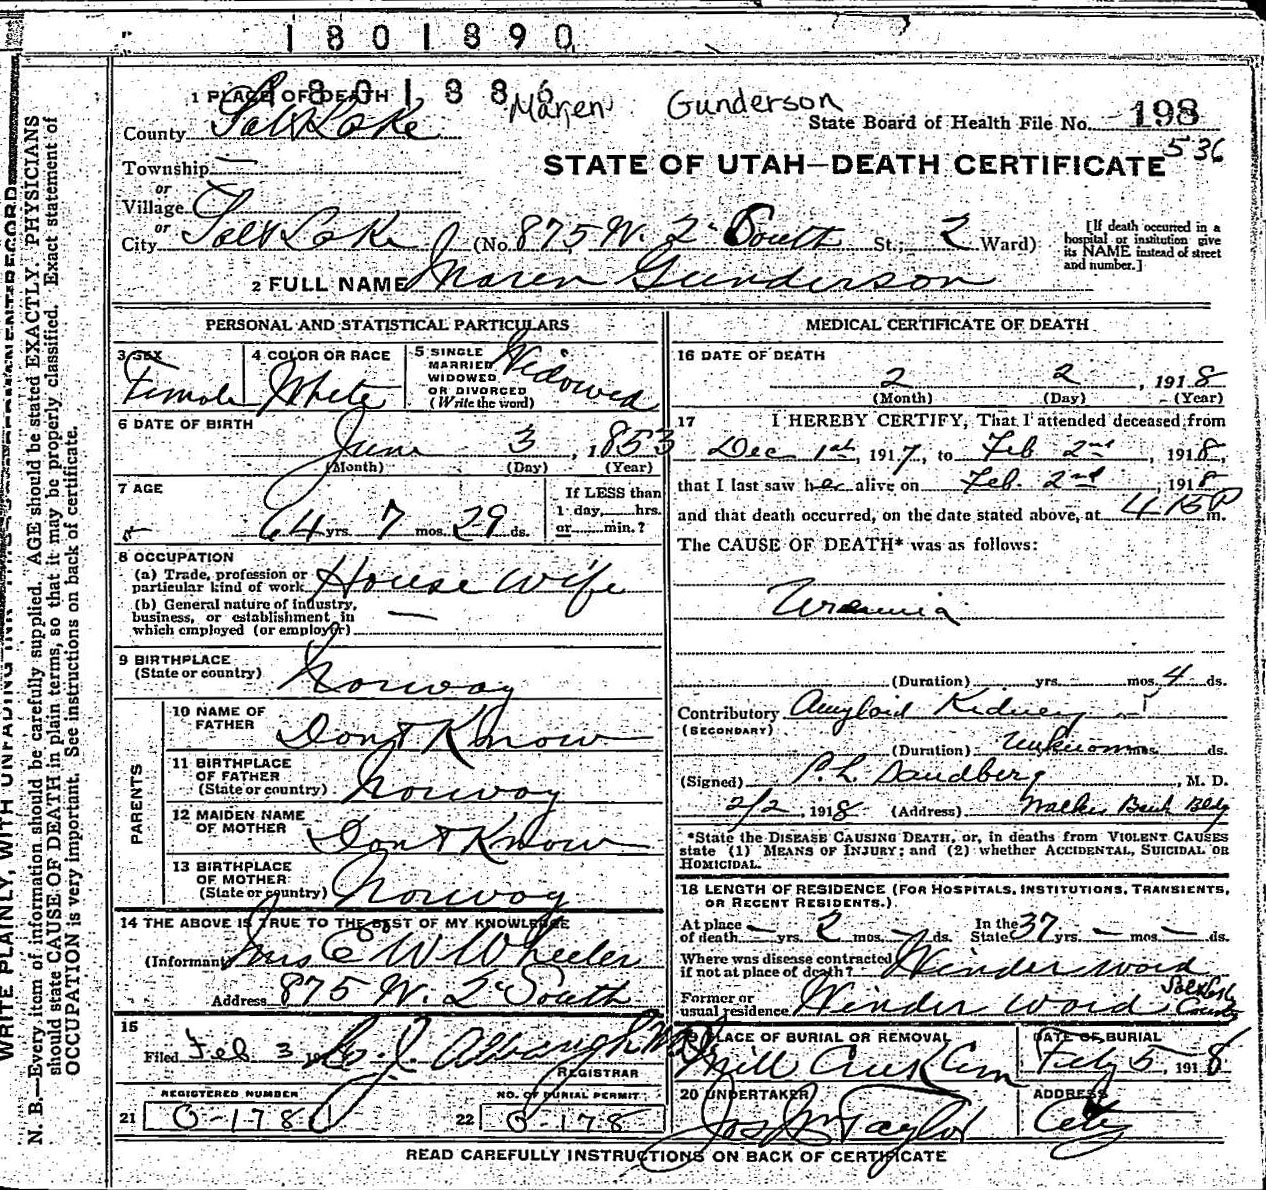 1801890
1801886
Maren Gunderson
1 PLACE OF DEATH
County Salt Lake
State Board of Health File No. 198
536
Township —
STATE OF UTAH—DEATH CERTIFICATE
or
Village
or
City Salt Lake (No. 875 W. 2d South St.; 2 Ward)
[If death occurred in a
hospital or institution give
its NAME instead of street
and number.]
2 FULL NAME Maren Gunderson
PERSONAL AND STATISTICAL PARTICULARS
3 SEX
Female
4 COLOR OR RACE
White
5 SINGLE
MARRIED
WIDOWED
OR DIVORCED
(Write the word)
Widowed
6 DATE OF BIRTH
June 3, 1853
(Month) (Day) (Year)
7 AGE
64 yrs. 7 mos. 29 ds.
If LESS than
1 day, hrs.
or min.?
8 OCCUPATION
(a) Trade, profession or
particular kind of work House Wife
(b) General nature of industry,
business, or establishment in
which employed (or employer) —
9 BIRTHPLACE
(State or country) Norway
PARENTS
10 NAME OF
FATHER Dont Know
11 BIRTHPLACE
OF FATHER
(State or country) Norway
12 MAIDEN NAME
OF MOTHER Dont Know
13 BIRTHPLACE
OF MOTHER
(State or country) Norway
14 THE ABOVE IS TRUE TO THE BEST OF MY KNOWLEDGE
(Informant) Mrs E W Wheeler
Address 875 W. 2d South
15
Filed Feb. 3, 19
REGISTRAR
REGISTERED NUMBER
21 O-178
NO. OF BURIAL PERMIT
22 O-178
MEDICAL CERTIFICATE OF DEATH
16 DATE OF DEATH
2 2, 1918
(Month) (Day) (Year)
17 I HEREBY CERTIFY, That I attended deceased from
Dec 1st, 1917, to Feb 2nd, 1918,
that I last saw her alive on Feb. 2nd, 1918
and that death occurred, on the date stated above, at 4 15 P m.
The CAUSE OF DEATH* was as follows:
Uraemia
(Duration) yrs. mos. 4 ds.
Contributory Amyloid Kidney
(SECONDARY)
(Duration) Unknown mos. ds.
(Signed) P. L. Sandberg, M. D.
2/2, 1918 (Address) Walker Bank Bldg
*State the DISEASE CAUSING DEATH, or, in deaths from VIOLENT CAUSES
state (1) MEANS OF INJURY; and (2) whether ACCIDENTAL, SUICIDAL OR
HOMICIDAL.
18 LENGTH OF RESIDENCE (FOR HOSPITALS, INSTITUTIONS, TRANSIENTS,
OR RECENT RESIDENTS.)
At place
of death — yrs. 2 mos. — ds.
In the
State 37 yrs. — mos. — ds.
Where was disease contracted
if not at place of death? Winder ward
Former or
usual residence Winder ward Salt Lake County
19 PLACE OF BURIAL OR REMOVAL
Mill Creek Cem
DATE OF BURIAL
Feby 5, 1918
20 UNDERTAKER
Jos Wm Taylor
ADDRESS
City
READ CAREFULLY INSTRUCTIONS ON BACK OF CERTIFICATE
WRITE PLAINLY, WITH UNFADING INK
N. B.—Every item of information should be carefully supplied. AGE should be stated EXACTLY. PHYSICIANS
should state CAUSE OF DEATH in plain terms, so that it may be properly classified. Exact statement of
OCCUPATION is very important. See instructions on back of certificate.